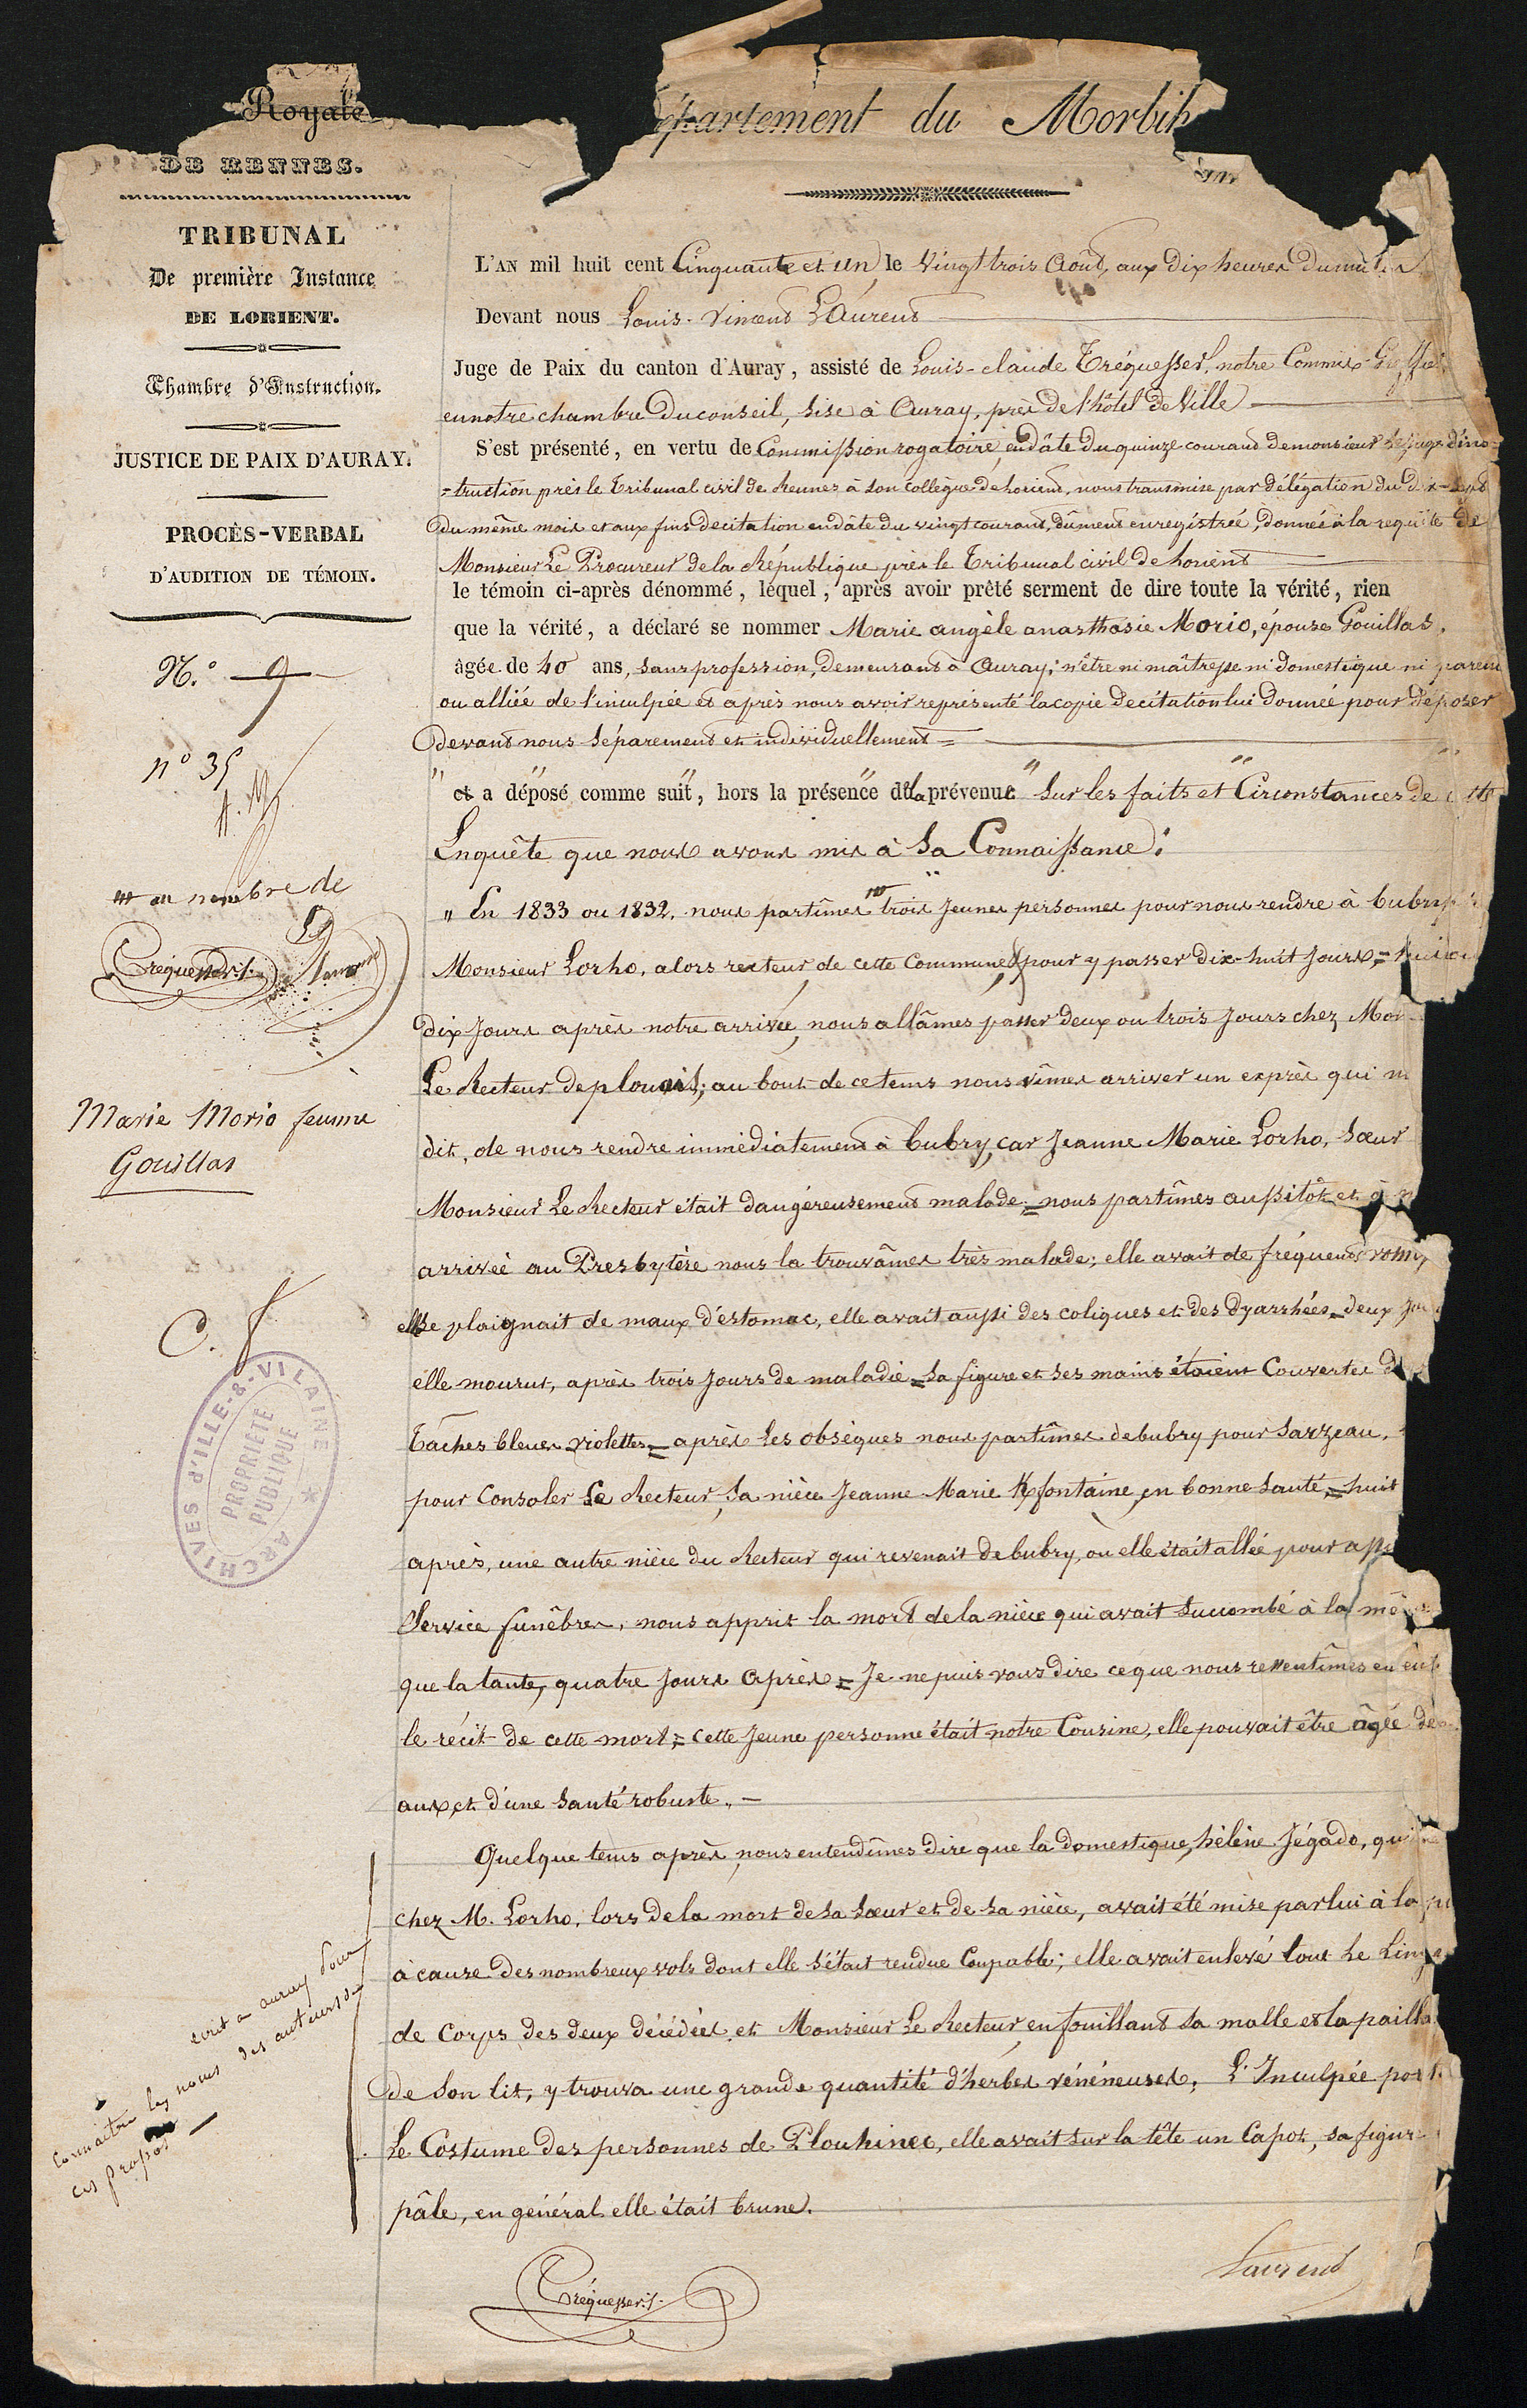 Royale
DE RENNES.
TRIBUNAL
De première Instance
DE LORIENT.
Chambre d'Instruction.
JUSTICE DE PAIX D'AURAY.
PROCÈS-VERBAL
D'AUDITION DE TÉMOIN.
N.º 9
nº 35
au nombre de
Tréquesser
Marie Morio femme
Gouillas
C.
ARCHIVES d'ILLE-&-VILAINE
PROPRIÉTÉ
PUBLIQUE
écrit a auray pour
connaitre les noms des auteurs de
ces propos
épartement du Morbih
L'AN mil huit cent Cinquante et un, le vingt trois Août, aux dix heures du matin
Devant nous Louis-Vincent Laurent
Juge de Paix du canton d'Auray, assisté de Louis-claude Tréquesser, notre Commis-Greffier
en notre chambre du conseil, sise à Auray, près de l'hôtel de Ville
S'est présenté, en vertu de Commission rogatoire, en dâte du quinze courant de monsieur le juge d'ins-
=truction près le Tribunal civil de Rennes à son collègue de Lorient, nous transmise par délégation du dix-sept
du même mois et aux fins de citation en dâte du vingt courant, dûment enregistrée, donnée à la requête de
Monsieur Le Procureur de la République près le Tribunal civil de Lorient
le témoin ci-après dénommé, lequel, après avoir prêté serment de dire toute la vérité, rien
que la vérité, a déclaré se nommer Marie angèle anasthasie Morio, épouse Gouillas,
âgée de 40 ans, sans profession, demeurant à Auray; n'être ni maîtresse ni domestique ni parente
ou alliée de l'inculpée et après nous avoir représenté la copie de citation lui donnée pour déposer
devant nous séparement et individuellement =
et a déposé comme suit, hors la présence de la prévenue sur les faits et Circonstances de
Enquête que nous avons mis à Sa Connaissance:
" En 1833 ou 1832, nous partîmes trois jeunes personnes pour nous rendre à bubry
Monsieur Lorho, alors recteur de cette Commune, pour y passer dix-huit jours, =
dix jours après notre arrivée, nous allâmes passer deux ou trois jours chez Mon
Le Recteur de plouais; au bout de ce tems nous vîmes arriver un exprès qui n
dit, de nous rendre immédiatement à bubry, car Jeanne Marie Lorho, sœur
Monsieur Le Recteur était dangéreusement malade, = nous partîmes aussitôt et à n
arrivée au Presbytère nous la trouvâmes très malade; elle avait de fréquents vomi
elle se plaignait de maux d'estomac, elle avait aussi des coliques et des dyarrhées = deux jou
elle mourut, après trois jours de maladie = Sa figure et ses mains étaient Couvertes d
tâches bleues violettes = après les obsèques nous partîmes de bubry pour Sarzeau,
pour Consoler Le Recteur, Sa nièce Jeanne Marie Kfontaine, en bonne santé, = huit
après, une autre nièce du Recteur qui revenait de bubry, où elle était allée pour ass
Service funèbres, nous apprit la mort de la nièce qui avait succombé à la mê
que la tante, quatre jours après = Je ne puis vous dire ce que nous ressentîmes en ent
le récit de cette mort; = Cette Jeune personne était notre Cousine, elle pouvait être âgée de
ans, et d'une santé robuste. —
Quelque tems après, nous entendîmes dire que la domestique, hélène Jégado, qui
chez M. Lorho, lors de la mort de Sa Sœur et de Sa nièce, avait été mise par lui à la p
à cause des nombreux vols dont elle s'était rendue Coupable; elle avait enlevé tout le Linge
de Corps des deux décédées et Monsieur Le Recteur, en fouillant sa malle et la pailla
de Son lit, y trouva une grande quantité d'herbes vénéneuses. L'Inculpée port
Le Costume des personnes de Plouhinec, elle avait sur la tête un Capot, sa figure
pâle, en général elle était brune.
Tréquesser
Laurent